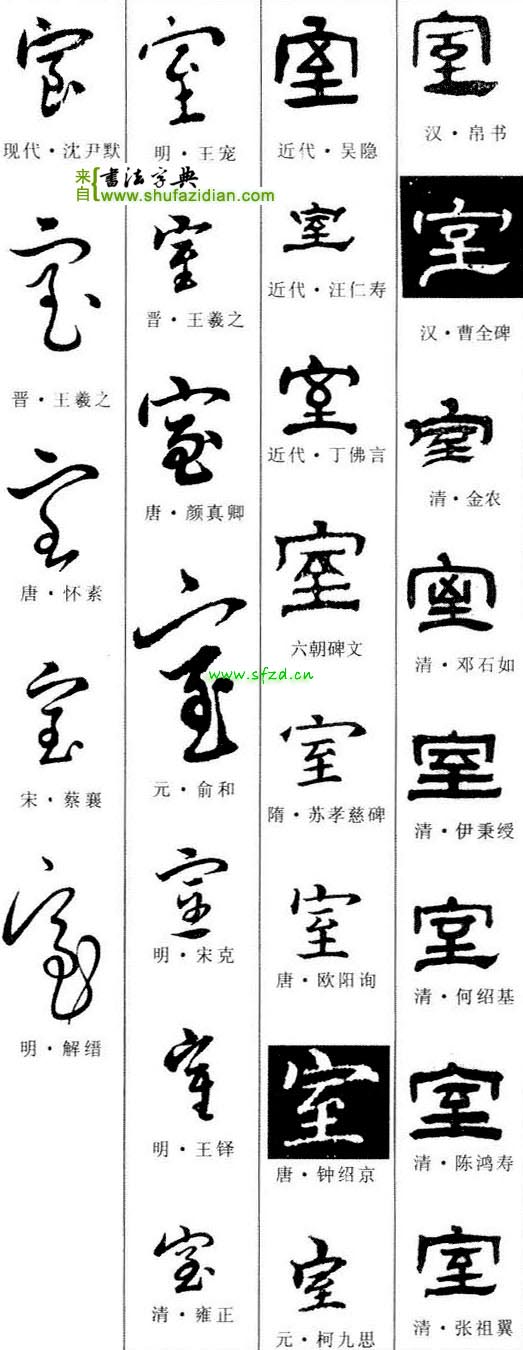 室
现代・沈尹默
室
晋・王羲之
室
唐・怀素
室
宋・蔡襄
室
明・解缙
室
明・王宠
来自{書法字典
www.shufazidian.com
室
晋・王羲之
室
唐・颜真卿
室
元・俞和
www.sfzd.cn
室
明・宋克
室
明・王铎
室
清・雍正
室
近代・吴隐
室
近代・汪仁寿
室
近代・丁佛言
室
六朝碑文
室
隋・苏孝慈碑
室
唐・欧阳询
室
唐・钟绍京
室
元・柯九思
室
汉・帛书
室
汉・曹全碑
室
清・金农
室
清・邓石如
室
清・伊秉绶
室
清・何绍基
室
清・陈鸿寿
室
清・张祖翼